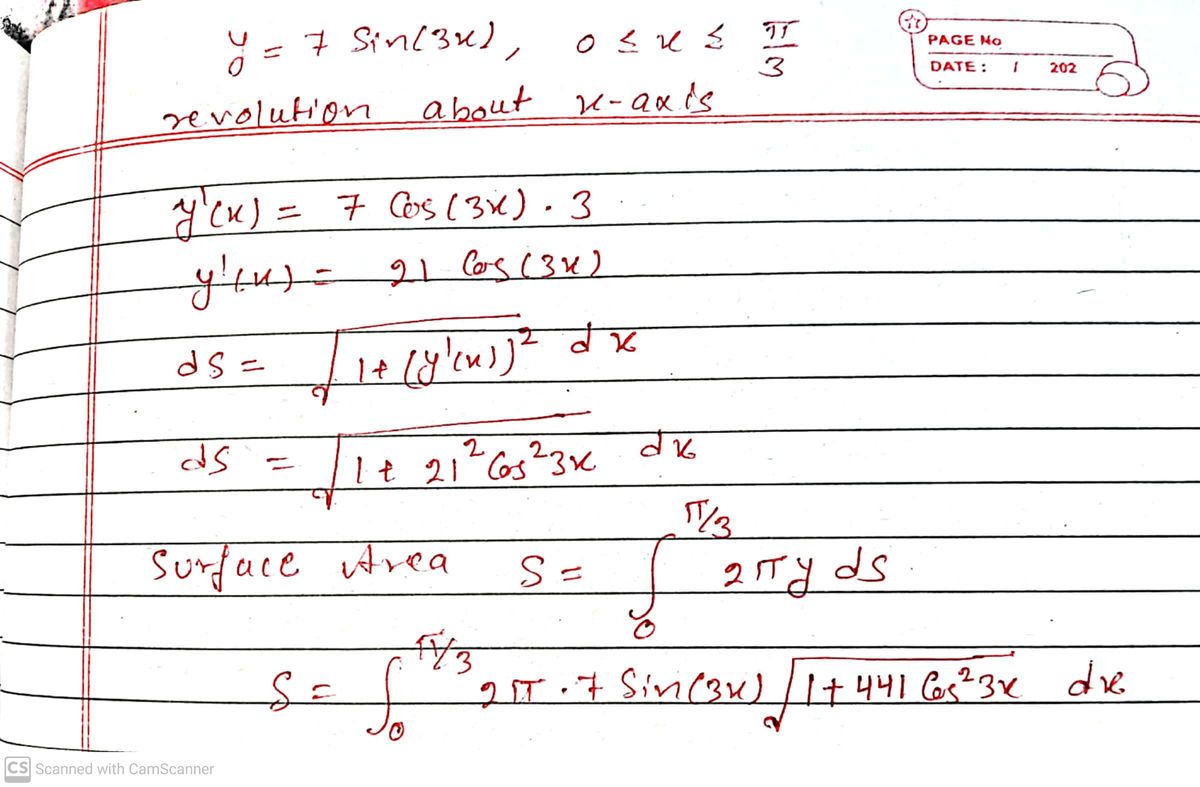 y = 7 Sin(3x), 0 ≤ x ≤ π/3
PAGE No
DATE: / 202
revolution about x-axis
y'(x) = 7 Cos(3x) · 3
y'(x) = 21 Cos(3x)
ds = √(1+(y'(x))²) dx
ds = √(1+21² Cos²3x) dx
Surface Area S = ∫₀^(π/3) 2πy ds
S = ∫₀^(π/3) 2π·7 Sin(3x) √(1+441 Cos²3x) dx
CS Scanned with CamScanner